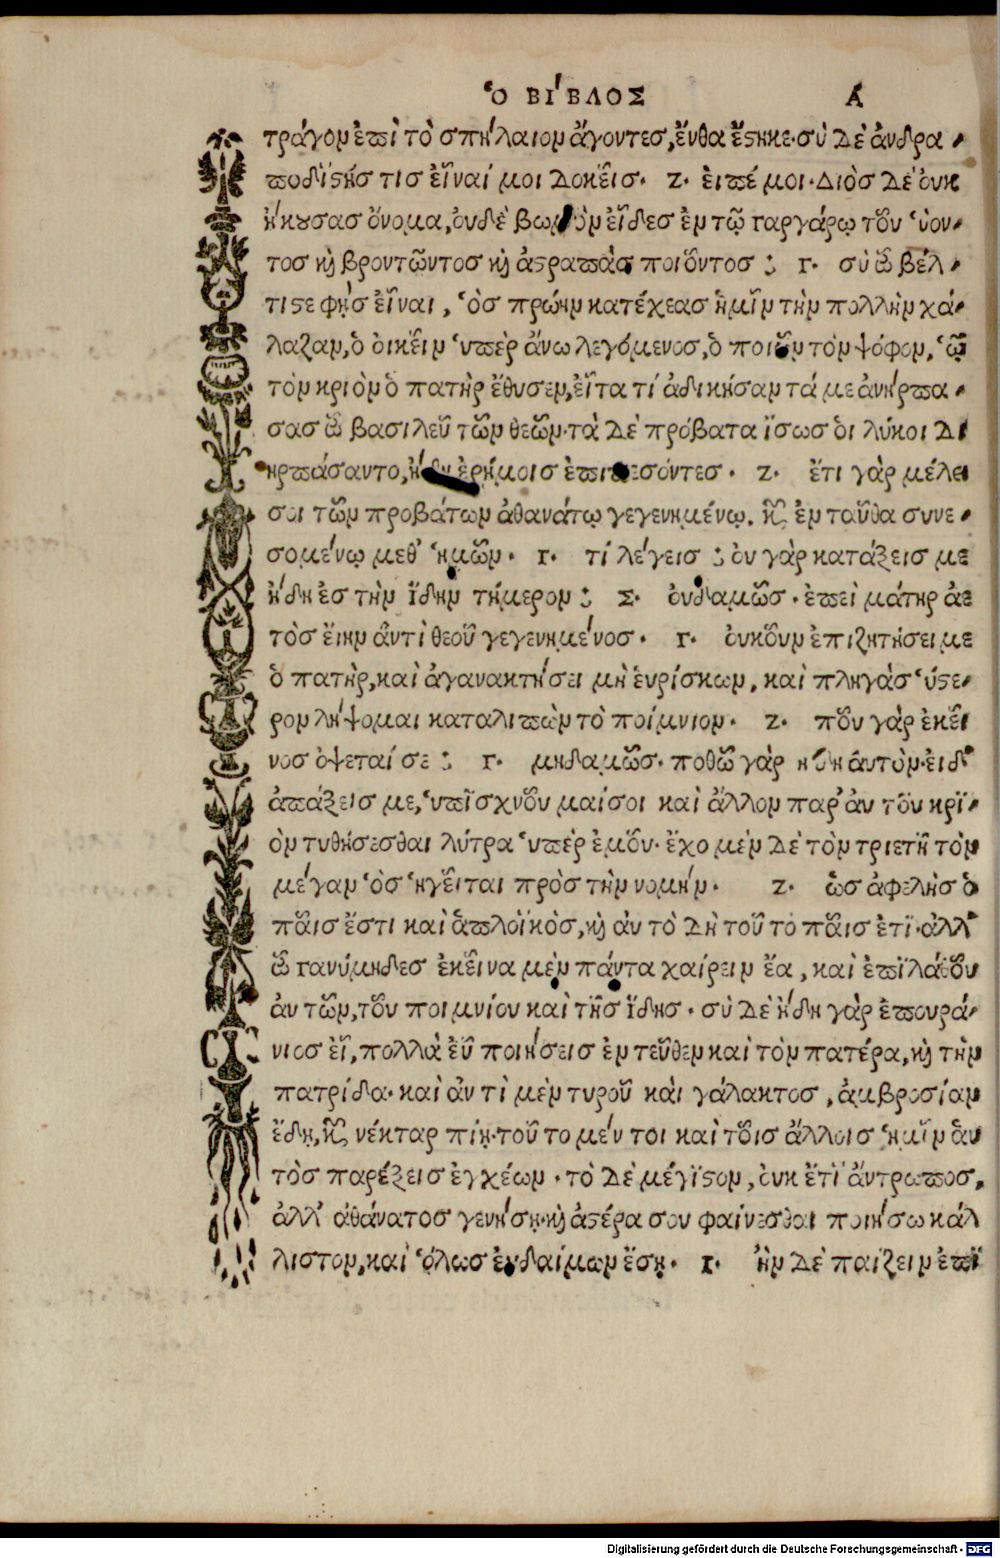 Ὁ ΒΊΒΛΟΣ Α
τράγον ἐπὶ τὸ σπήλαιον ἄγοντες, ἔνθα ἔϛηκε· σὺ δὲ ἀνδρα
ποδϊϛής τις εἶναί μοι δοκεῖς. Ζ. ἐιπέ μοι· Διὸς δὲ ὀυκ
ἤκουσας ὄνομα, ὀυδὲ βωμὸν εἶδες ἐν τῷ γαργάρῳ τοῦ ὑον
τος κὶ βροντῶντος κὶ ἀϛραπὰς ποιοῦντος ; Γ. σὺ ὦ βέλ
τιϛε φῂς εἶναι, ὁς πρώην κατέχεας ἡμῖν τὴν πολλὴν χά
λαζαν, ὁ ὀικεῖν ὑπὲρ ἄνω λεγόμενος, ὁ ποιῶν τὸν ψόφον, ᾧ
τὸν κριὸν ὁ πατὴρ ἔθυσεν, εἶτα τί ἀδικήσαντά με ἀνήρπα
σας ὦ βασιλεῦ τῶν θεῶν· τὰ δὲ πρόβατα ἴσως ὁι λύκοι δι
ηρπάσαντο, ἤδη ἐρήμοις ἐπιπεσόντες. Ζ. ἔτι γὰρ μέλει
σοι τῶν προβάτων ἀθανάτῳ γεγενημένῳ. κὶ ἐνταῦθα συνε
σομένῳ μεθ' ἡμῶν. Γ. τί λέγεις ; ὀυ γὰρ κατάξεις με
ἤδη ἐς τὴν ἴδην τήμερον ; Σ. ὀυδαμῶς. ἐπεὶ μάτην ἀε
τὸς ἔιην ἀντὶ θεοῦ γεγενημένος. Γ. ὀυκοῦν ἐπιζητήσει με
ὁ πατὴρ, καὶ ἀγανακτήσει μὴ ἑυρίσκων, καὶ πληγὰς ὑϛε
ρον λήψομαι καταλιπὼν τὸ ποίμνιον. Ζ. ποῦ γὰρ ἐκεῖ
νος ὀψεταί σε ; Γ. μηδαμῶς· ποθῶ γὰρ ἤδη ἀυτὸν· ἐι δ'
ἀπάξεις με, ὑπϊσχνοῦμαί σοι καὶ ἄλλον παρ' ἀυτοῦ κρϊ
ὸν τυθήσεσθαι λύτρα ὑπὲρ ἐμοῦ· ἔχομὲν δὲ τὸν τριετῆ τὸν
μέγαν ὁς ἡγεῖται πρὸς τὴν νομήν. Ζ. ὡς ἀφελὴς ὁ
παῖς ἔστι καὶ ἁπλοϊκὸς, κὶ ἀυτὸ δὴ τοῦτο παῖς ἐτϊ· ἀλλ'
ὦ γανύμηδες ἐκεῖνα μὲν πάντα χαίρειν ἔα, καὶ ἐπϊλάθου
ἀυτῶν, τοῦ ποιμνίου καὶ τῆς ἴδης. σὺ δὲ ἤδη γὰρ ἐπουρά
νιος εἶ, πολλὰ ἐῦ ποιήσεις ἐντεῦθεν καὶ τὸν πατέρα, κὶ τὴν
πατρίδα· καὶ ἀντὶ μὲν τυροῦ κὰι γάλακτος, ἀμβροσίαν
ἔδη, κὶ νέκταρ πίῃ· τοῦτο μέν τοι καὶ τοῖς ἄλλοις ἡμῖν ἀυ
τὸς παρέξεις ἐγχέων. τὸ δὲ μέγϊϛον, ὀυκ ἔτϊ ἄντρωπος,
ἀλλ' ἀθάνατος γενήσῃ· κὶ ἀϛέρα σου φαίνεσθαι ποιήσω κάλ
λιστον, καὶ ὁλως ἐυδαίμων ἔσῃ. Γ. ἢν δὲ παίζειν ἐπϊ
Digitalisierung gefördert durch die Deutsche Forschungsgemeinschaft - DFG